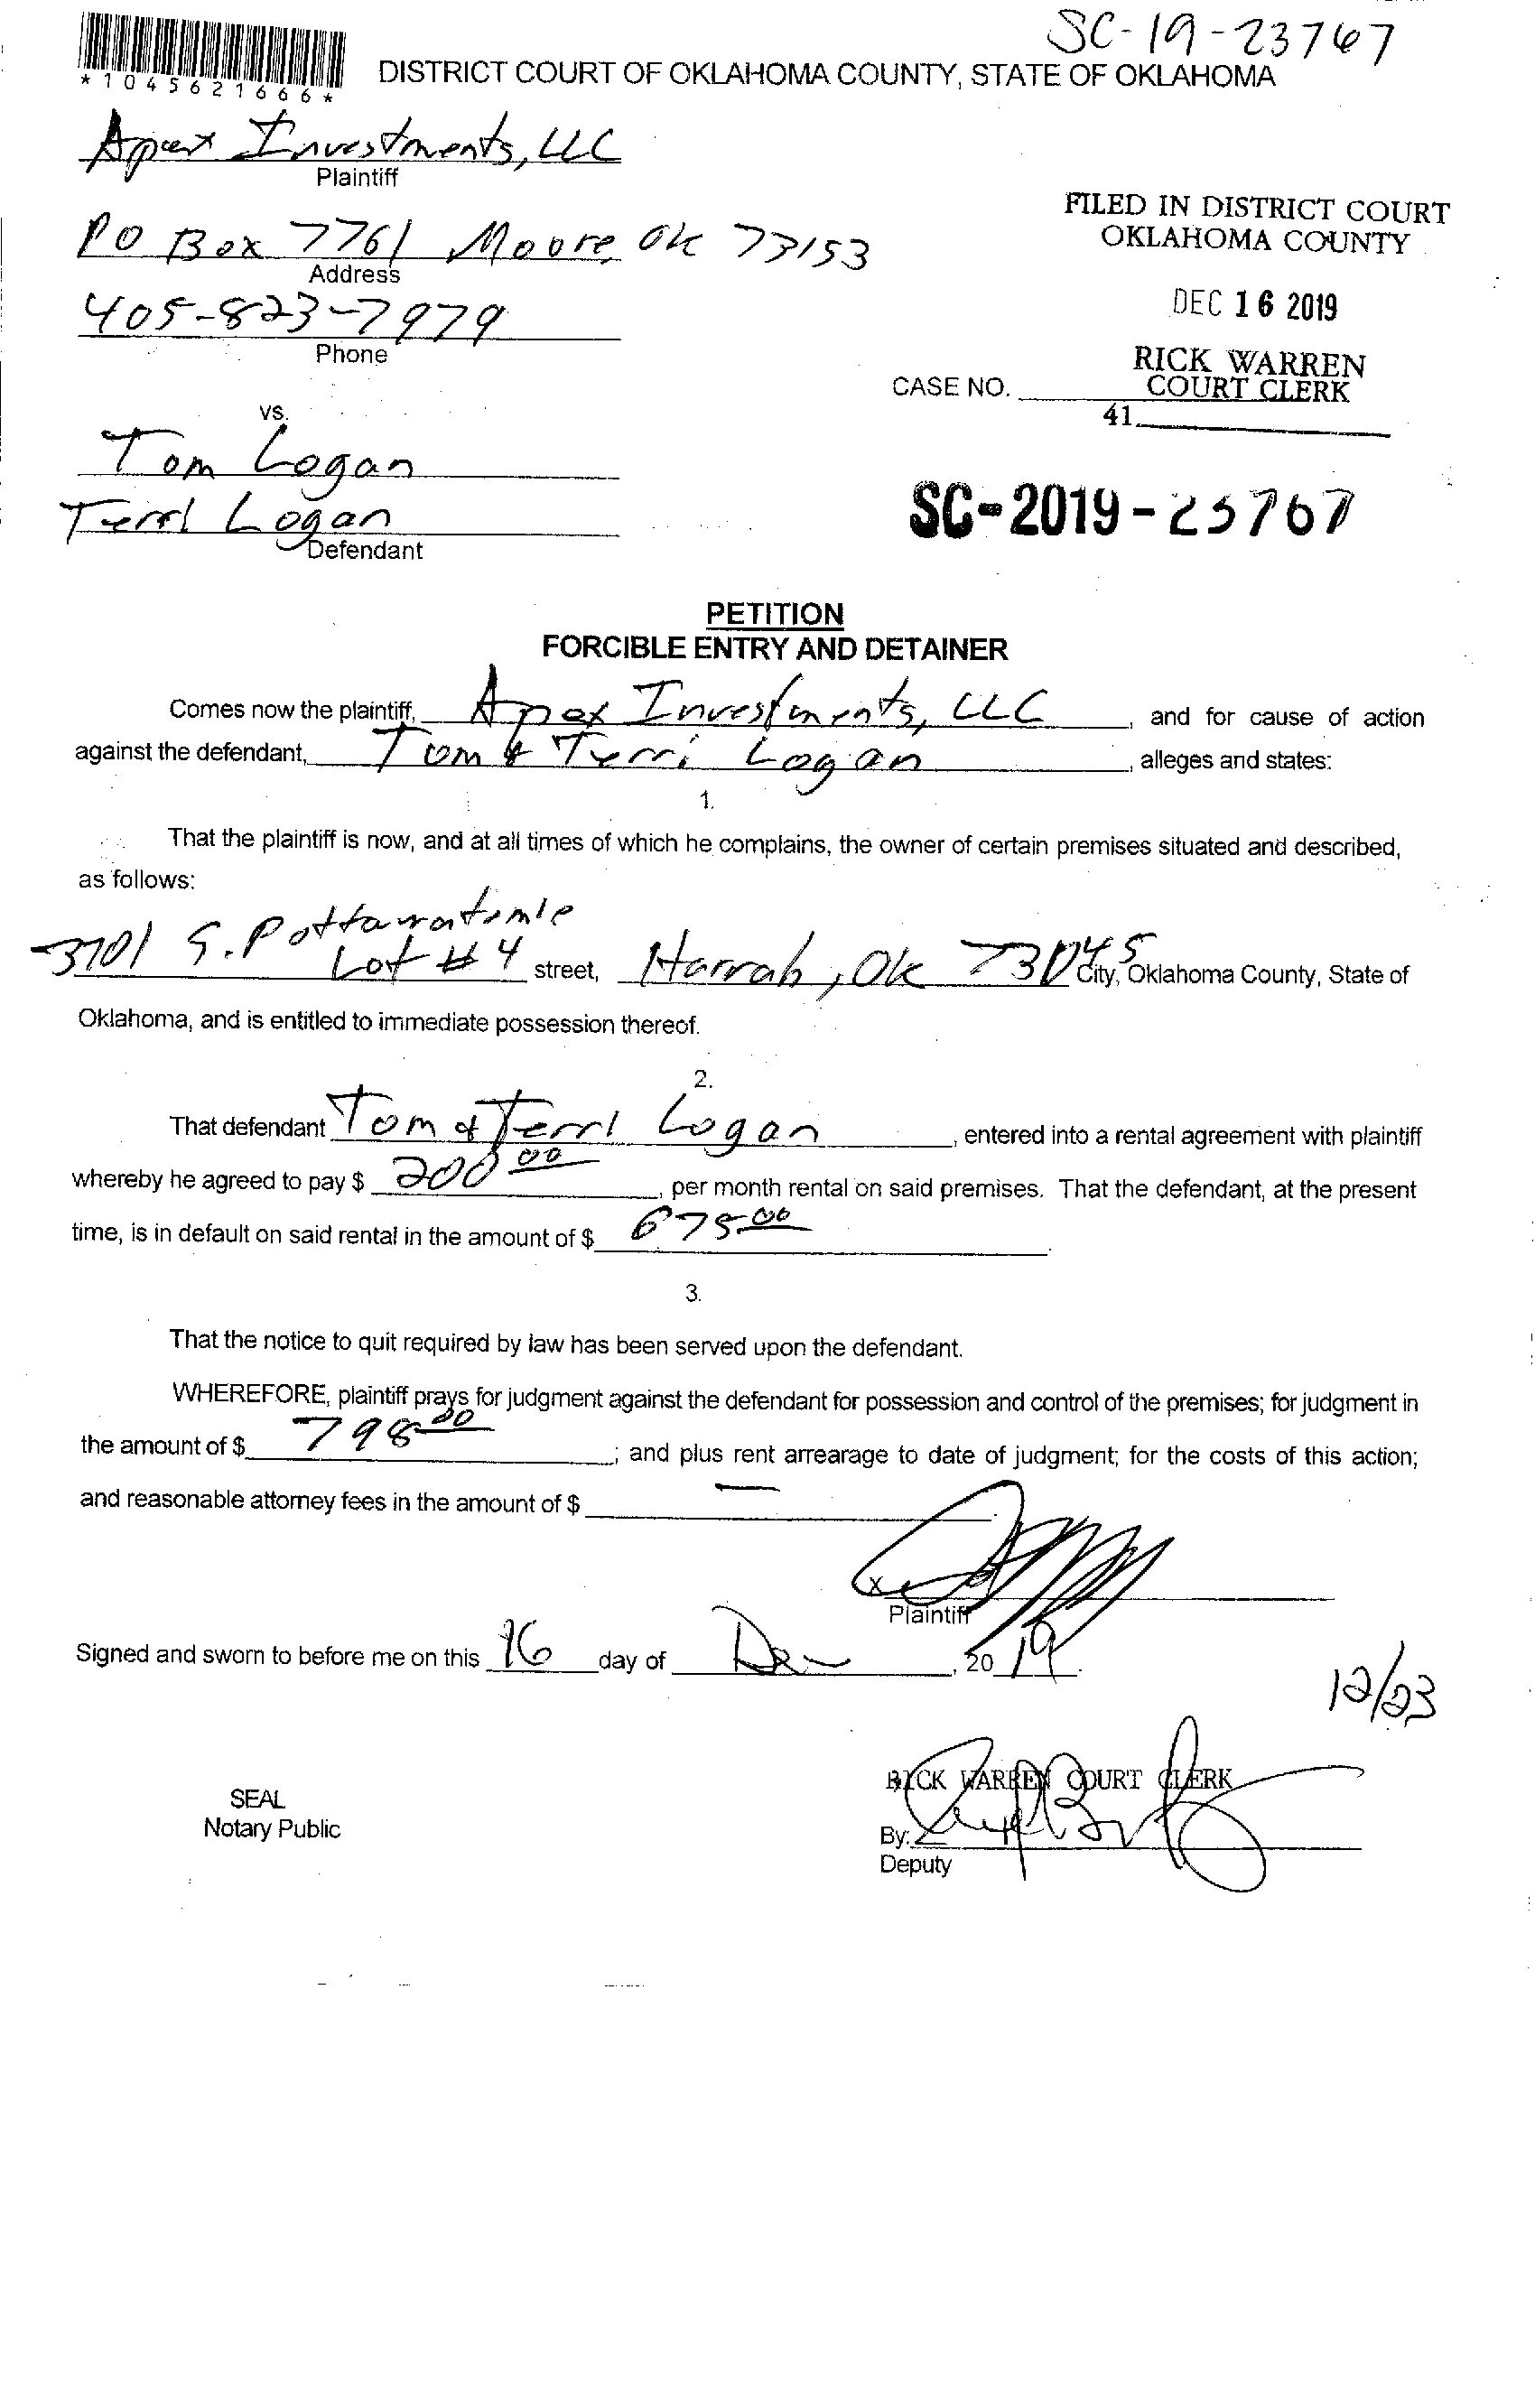 SC-19-23767
*1045621666*
DISTRICT COURT OF OKLAHOMA COUNTY, STATE OF OKLAHOMA
Apex Investments, LLC
Plaintiff
PO Box 7761 Moore, Ok 73153
Address
405-823-7979
Phone
FILED IN DISTRICT COURT
OKLAHOMA COUNTY
DEC 16 2019
RICK WARREN
COURT CLERK
CASE NO.
41
vs.
Tom Logan
Terri Logan
Defendant
SC-2019-23767
PETITION
FORCIBLE ENTRY AND DETAINER
Comes now the plaintiff, Apex Investments, LLC, and for cause of action
against the defendant, Tom & Terri Logan, alleges and states:
1.
That the plaintiff is now, and at all times of which he complains, the owner of certain premises situated and described,
as follows:
3701 S. Pottawatomie
Lot #4 street, Harrah, Ok 73045 City, Oklahoma County, State of
Oklahoma, and is entitled to immediate possession thereof.
2.
That defendant Tom & Terri Logan, entered into a rental agreement with plaintiff
whereby he agreed to pay $ 200 00, per month rental on said premises. That the defendant, at the present
time, is in default on said rental in the amount of $ 675.00.
3.
That the notice to quit required by law has been served upon the defendant.
WHEREFORE, plaintiff prays for judgment against the defendant for possession and control of the premises; for judgment in
the amount of $ 798 00; and plus rent arrearage to date of judgment; for the costs of this action;
and reasonable attorney fees in the amount of $ —.
x
Plaintiff
Signed and sworn to before me on this 16 day of Dec, 2019.
12/23
RICK WARREN COURT CLERK
SEAL
Notary Public
By:
Deputy